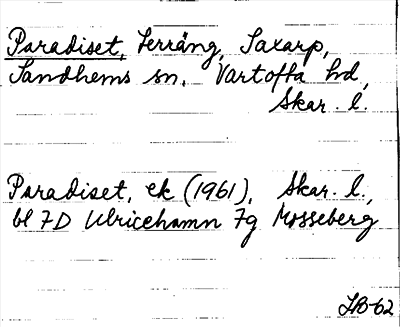 Paradiset, Terräng, Saxarp,
Sandhems sn, Vartofta hd,
Skar. l.
Paradiset, ek (1961), Skar. l.,
bl 7D Ulricehamn 7g Mosseberg
IB-62